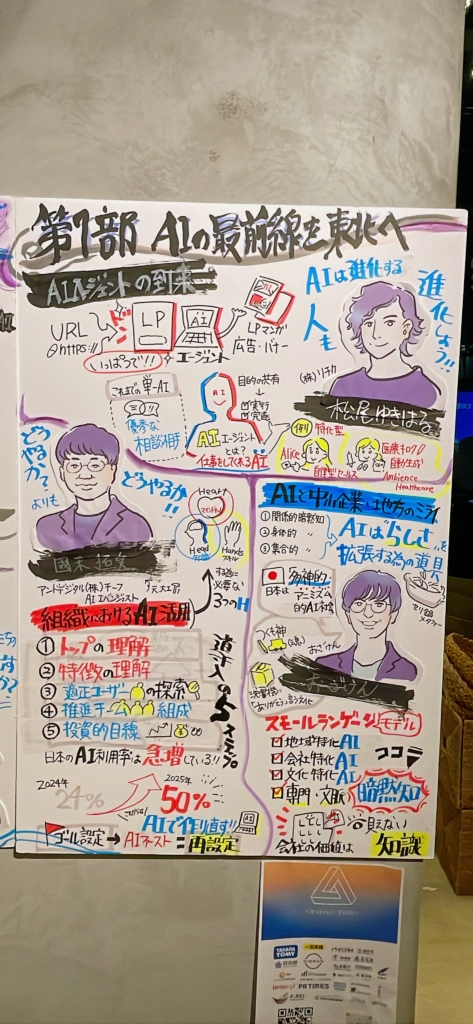 第1部 AIの最前線を東北へ
AIエージェントの到来
URL
https://
LP
AI
いっぱつで!!
エージェント
LPマンガ
広告・バナー
AIは進化する
人も
進化しよう!!
(株)リチカ
松尾ゆきはる
これまでの単一AI
優秀な
相談相手
AI
目的の共有
実行
完遂
AIエージェント
とは?
仕事をしてくれるAI
例)
特化型
Alice
自律型セールス
医療キロク
自動生成
Ambience
Healthcare
どう
やるか?
よりも
どうやるか!!
國本
アンドデジタル(株)チーフ
AIエバンジェリスト
Heart
マインド
Head
Hands
スキル
する為に
必要な
3つのH
組織におけるAI活用
① トップの理解
② 特徴の理解
③ 適正ユーザーの探索
④ 推進チーム組成
⑤ 投資的目線
導入の5ステップ
日本のAI利用率は急増している!!
2024年
24%
2025年
50%
AIで作り直す!!
ゴール設定 → AIファースト = 再設定
AIと中小企業・地方のミライ
① 関係的暗黙知
② 身体的 〃
③ 集合的 〃
AIは"らしさ"を
拡張する為の道具
日本は
多神的
アニミズム
的AI本位
つくも神
おごけん
ありがとう言う文化
おごけん
スモールランゲージモデル
地域特化AI
会社特化AI
文化特化AI
専門・文脈
ココラ
暗黙知
見えない
会社の価値は
知識
Graphic Talks
TAKARA
TOMY
PR TIMES